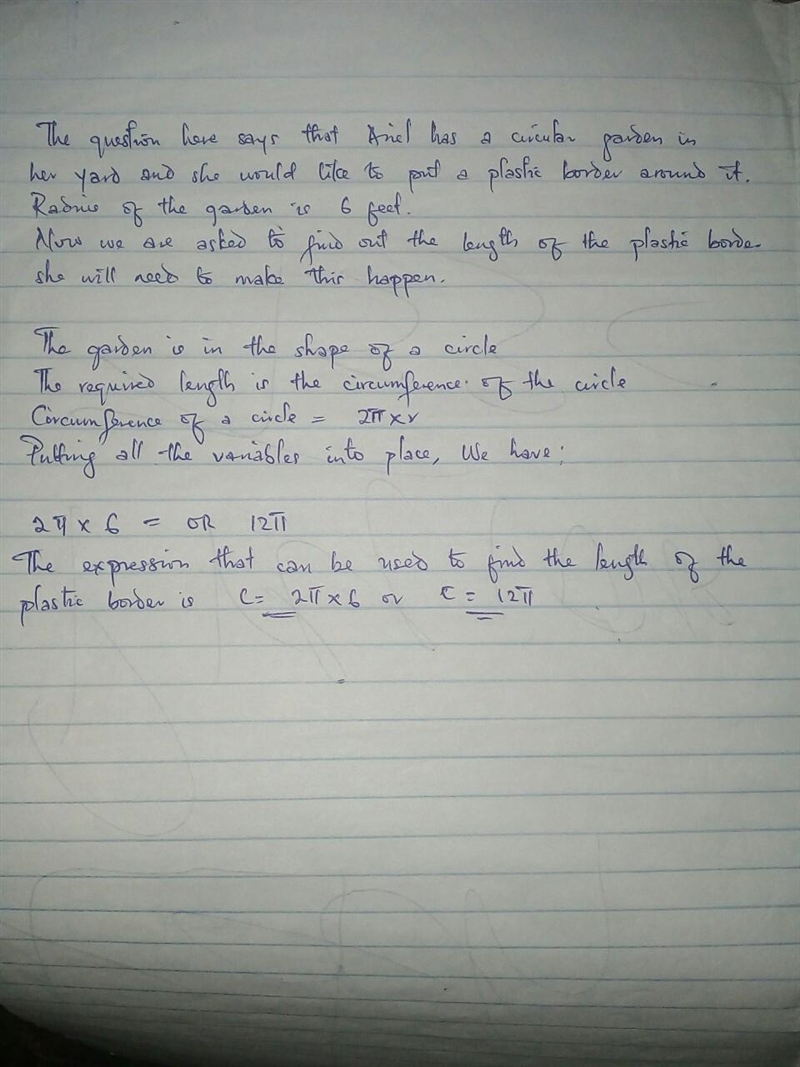 The question here says that Ariel has a circular garden in
her yard and she would like to put a plastic border around it.
Radius of the garden is 6 feet.
Now we are asked to find out the length of the plastic borde
she will need to make this happen.
The garden is in the shape of a circle
The required length is the circumference of the circle
Circumference of a circle = 2π×r
Putting all the variables into place, We have:
2π × 6 = OR 12π
The expression that can be used to find the length of the
plastic border is C= 2π×6 or C= 12π